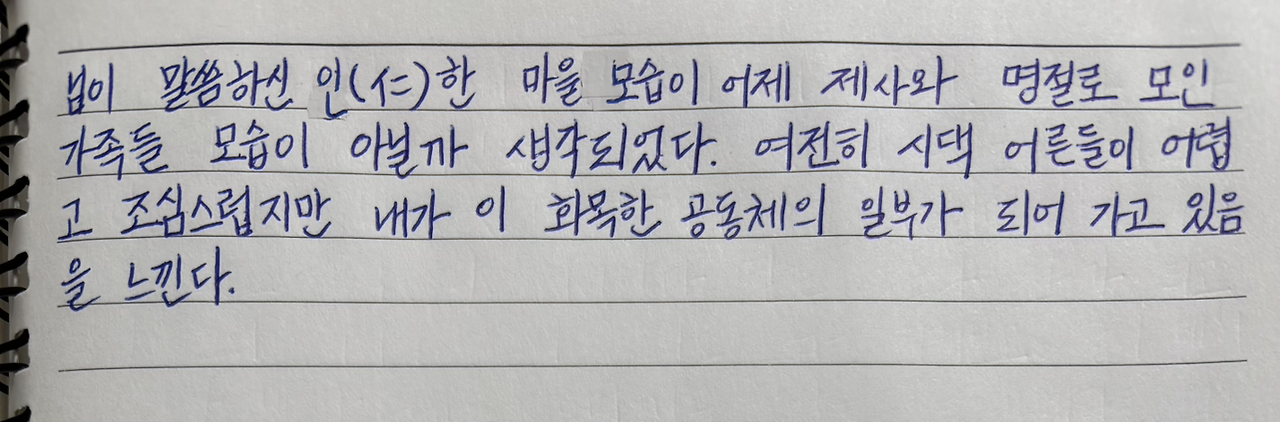 님이 말씀하신 인(仁)한 마을 모습이 어제 제사와 명절로 모인
가족들 모습이 아닐까 생각되었다. 여전히 시댁 어른들이 어렵
고 조심스럽지만 내가 이 화목한 공동체의 일부가 되어 가고 있음
을 느낀다.